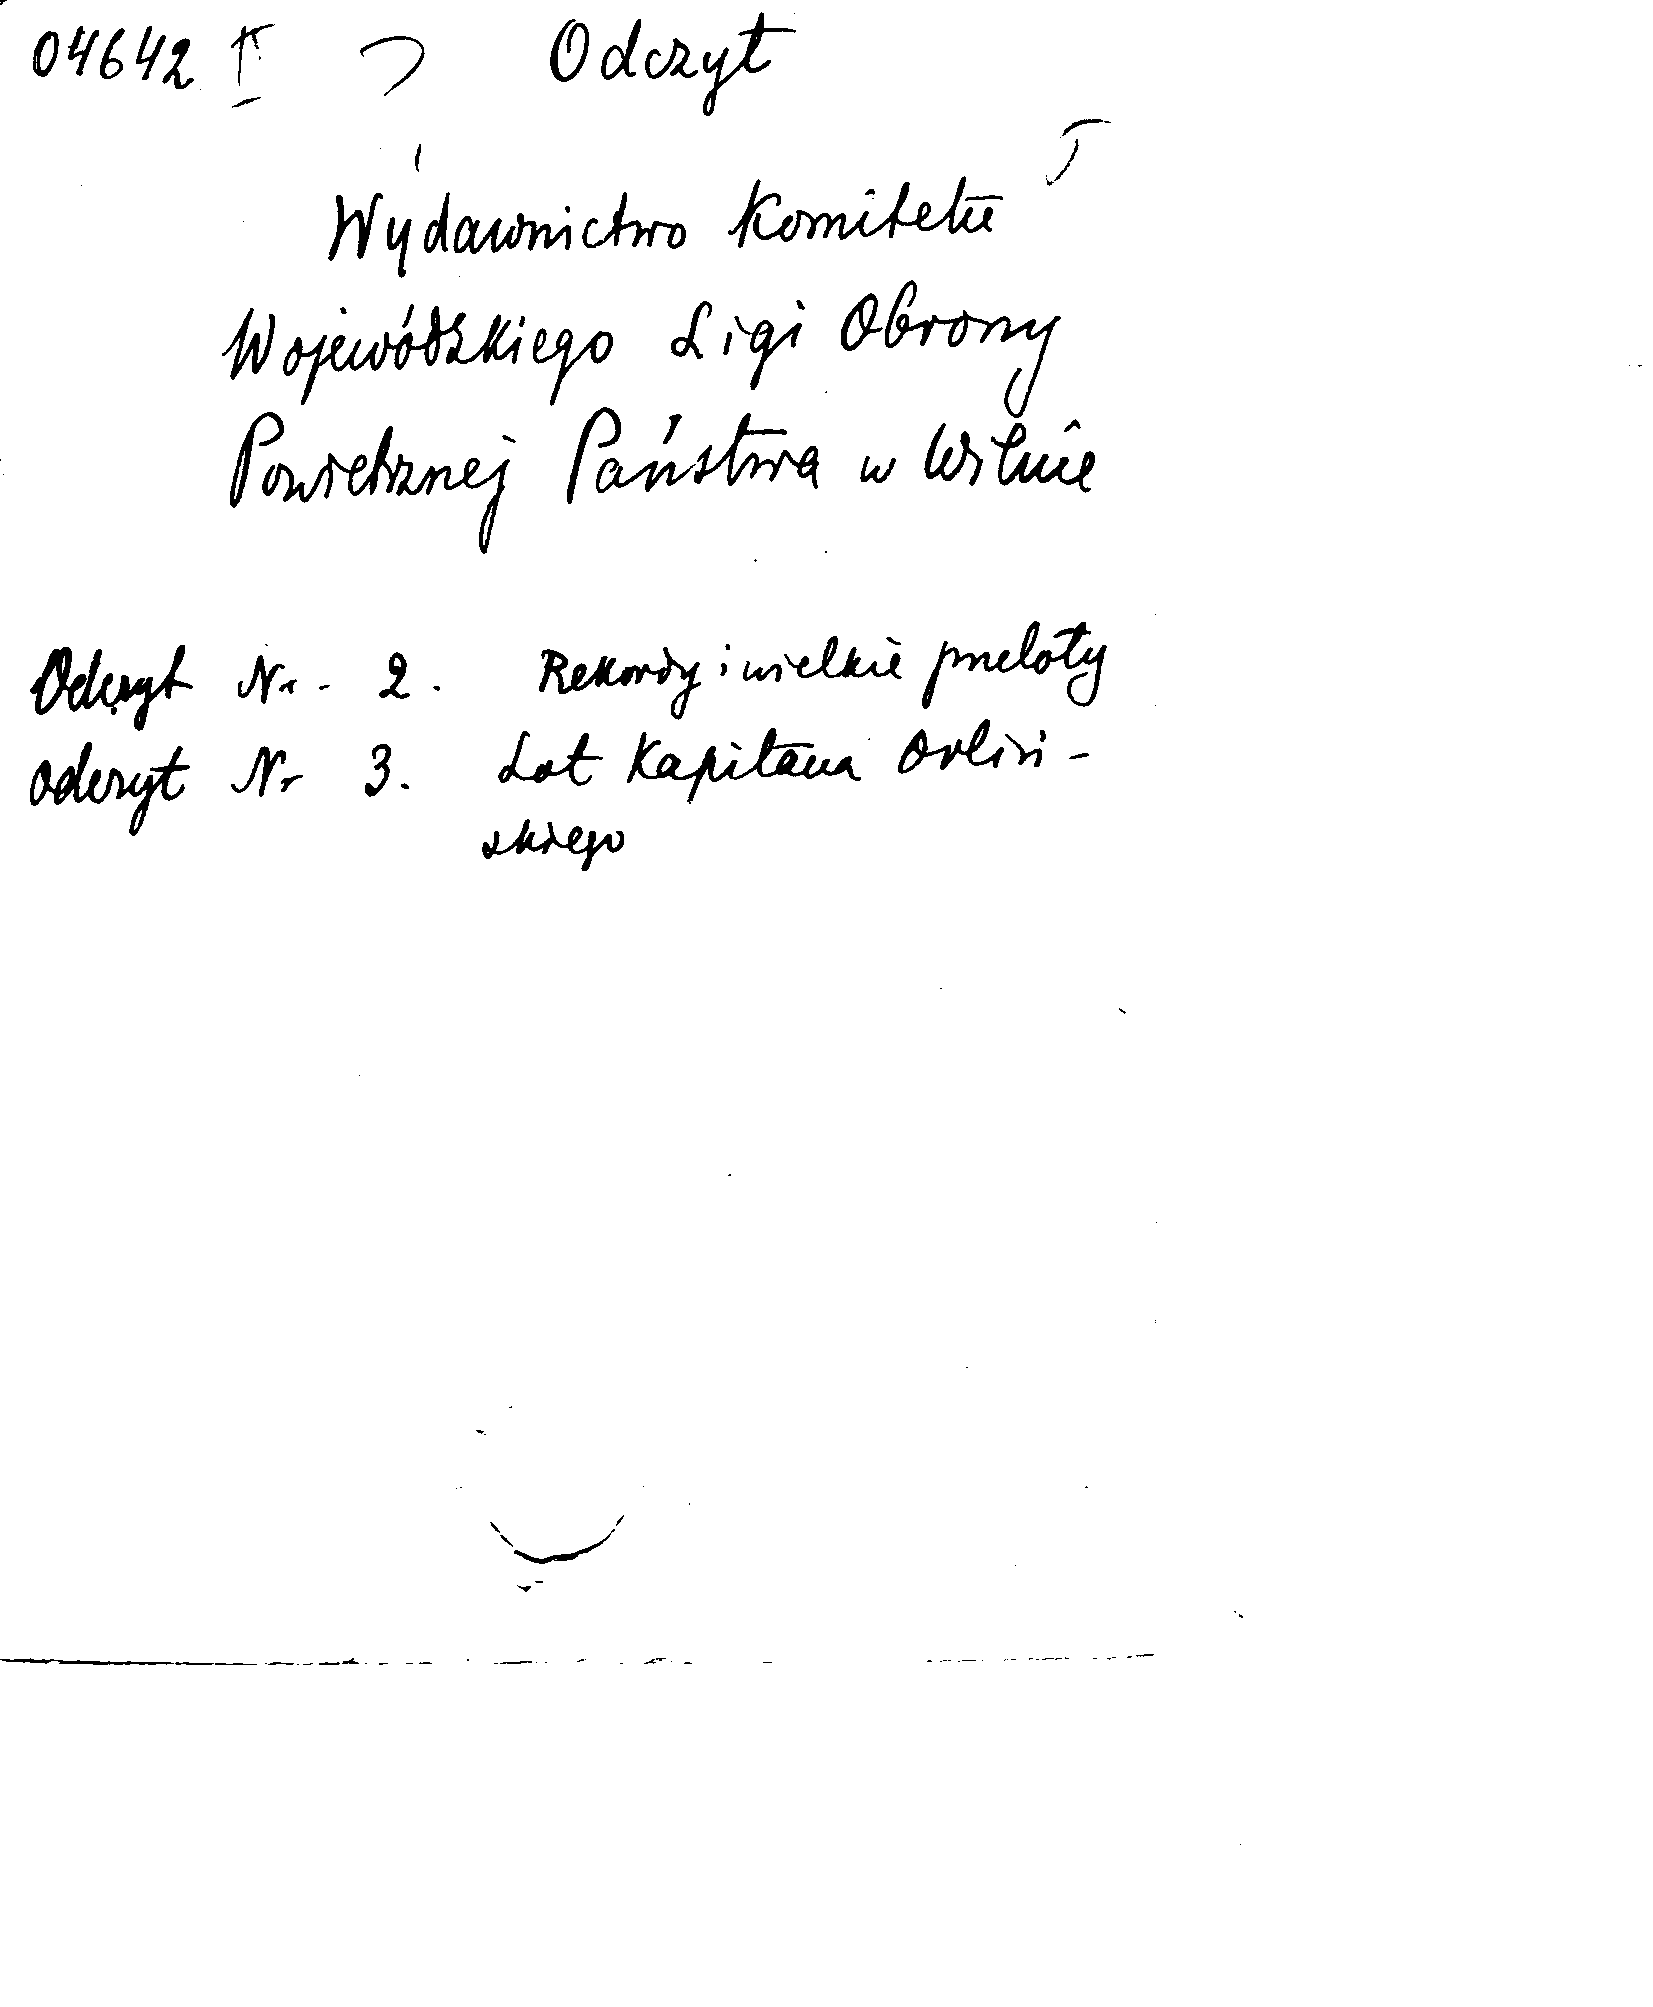 04642 II Odczyt
Wydawnictwo Komitetu
Wojewódzkiego Ligi Obrony
Powietrznej Państwa w Wilnie
Odczyt Nr. 2. Rekordy i wielkie przeloty
Odczyt Nr 3. Lot Kapitana Orliń-
skiego